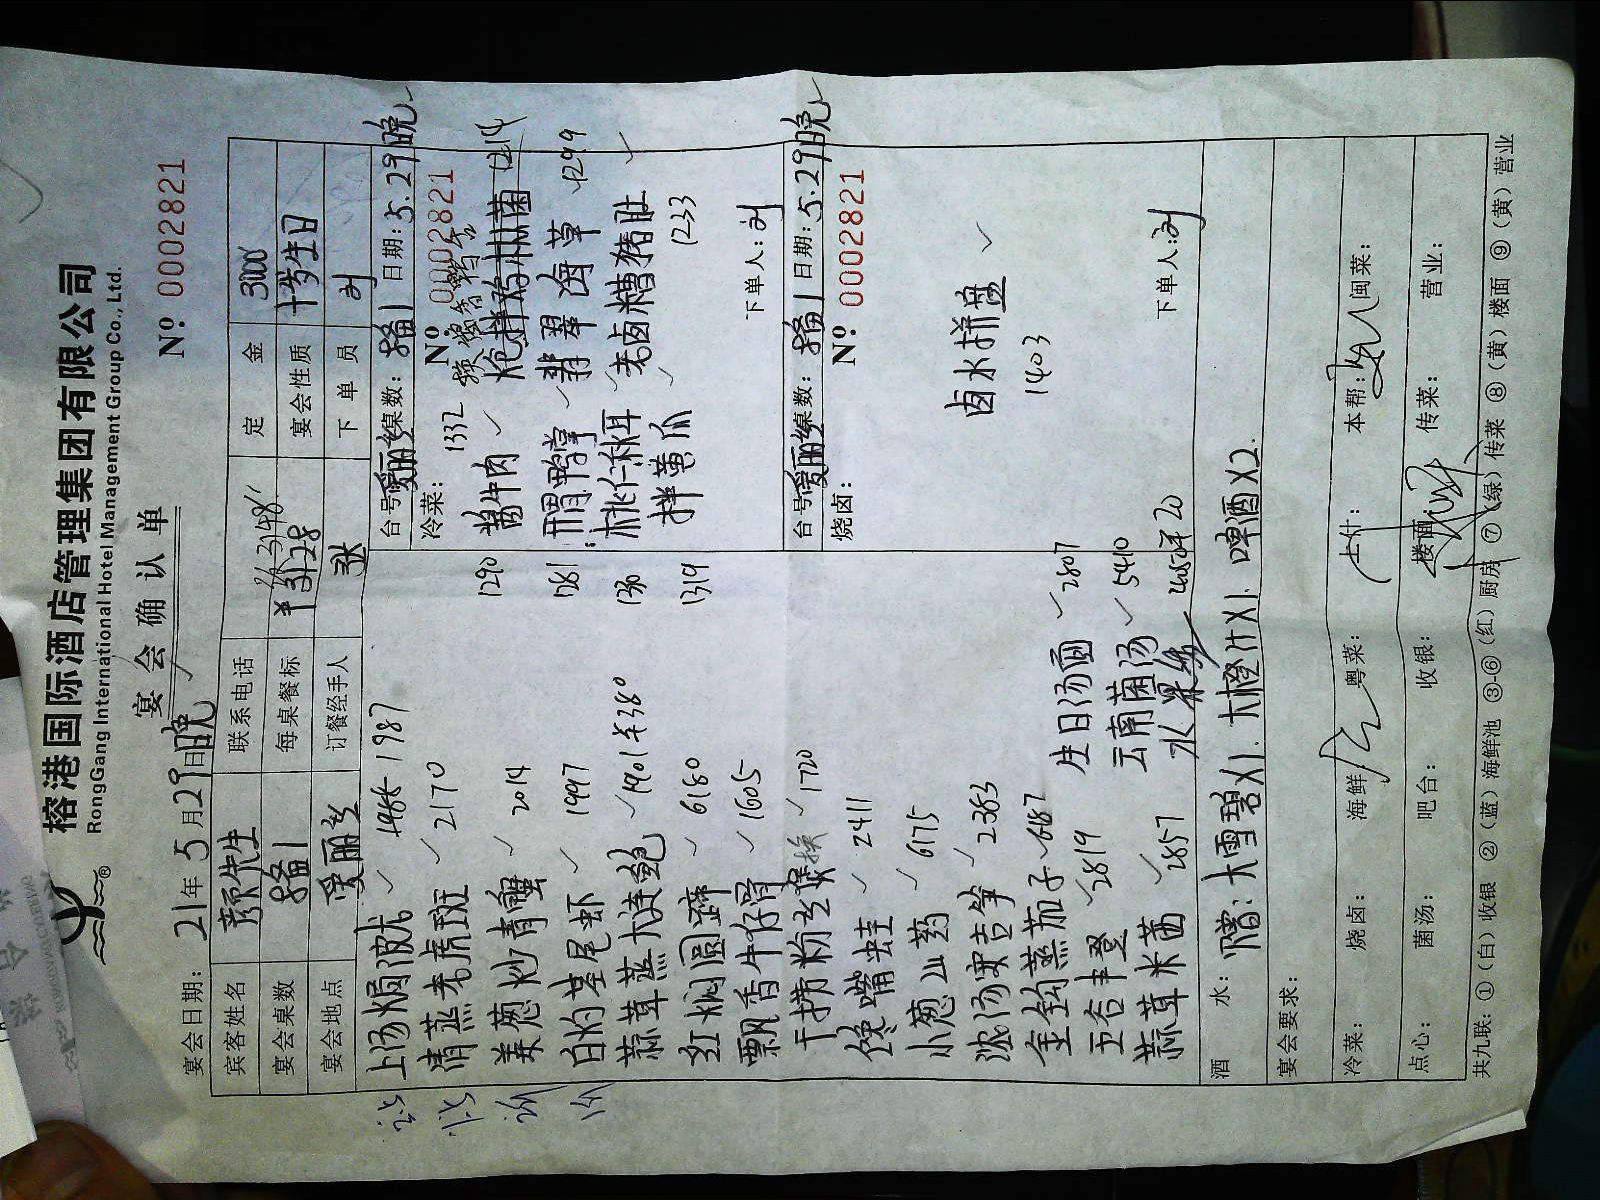 榕港国际酒店管理集团有限公司
RongGang International Hotel Management Group Co., Ltd.
宴会确认单
Nº 0002821
宴会日期: 21年5月29日晚
宾客姓名 颜先生 联系电话 定金 3000
宴会桌数 每桌餐标 ¥3128 宴会性质 十岁生日
宴会地点 爱丽 订餐经手人 张 下单员 刘
上汤焗波龙 1987
清蒸老虎斑 2170
姜葱炒青蟹 2014
白灼基尾虾 1997
蒜茸蒸大连鲍 1901半380
红焖圆蹄 6180
飘香牛仔骨 1605
干捞粉丝煲 换 1720
馋嘴蛙 2411
小葱山药 6175
浓汤安吉笋 2383
金钩蒸茄子 687
五谷丰登 2819
蒜茸米苋 2857
生日汤面 2807
云南菌汤 5410
水果
台号 爱丽 桌数: 日期: 5.29晚
冷菜: Nº 0002821
1332
1290 酱牛肉 炝拌
1281 鸭掌 翡翠海草 1299
桃仁秋耳 老卤糟猪肚
1319 拌黄瓜 1233
下单人: 刘
台号 爱丽 桌数: 日期: 5.29晚
烧卤: Nº 0002821
卤水拼盘
1403
下单人: 刘
酒水: 赠: 大雪碧X1. 大橙汁X1. 啤酒X2.
宴会要求:
冷菜: 烧卤: 海鲜: 粤菜: 上什: 本帮: 闽菜:
点心: 菌汤: 吧台: 收银: 楼面: 传菜: 营业:
共九联: ①(白)收银 ②(蓝)海鲜池 ③-⑥(红)厨房 ⑦(绿)传菜 ⑧(黄)楼面 ⑨(黄)营业